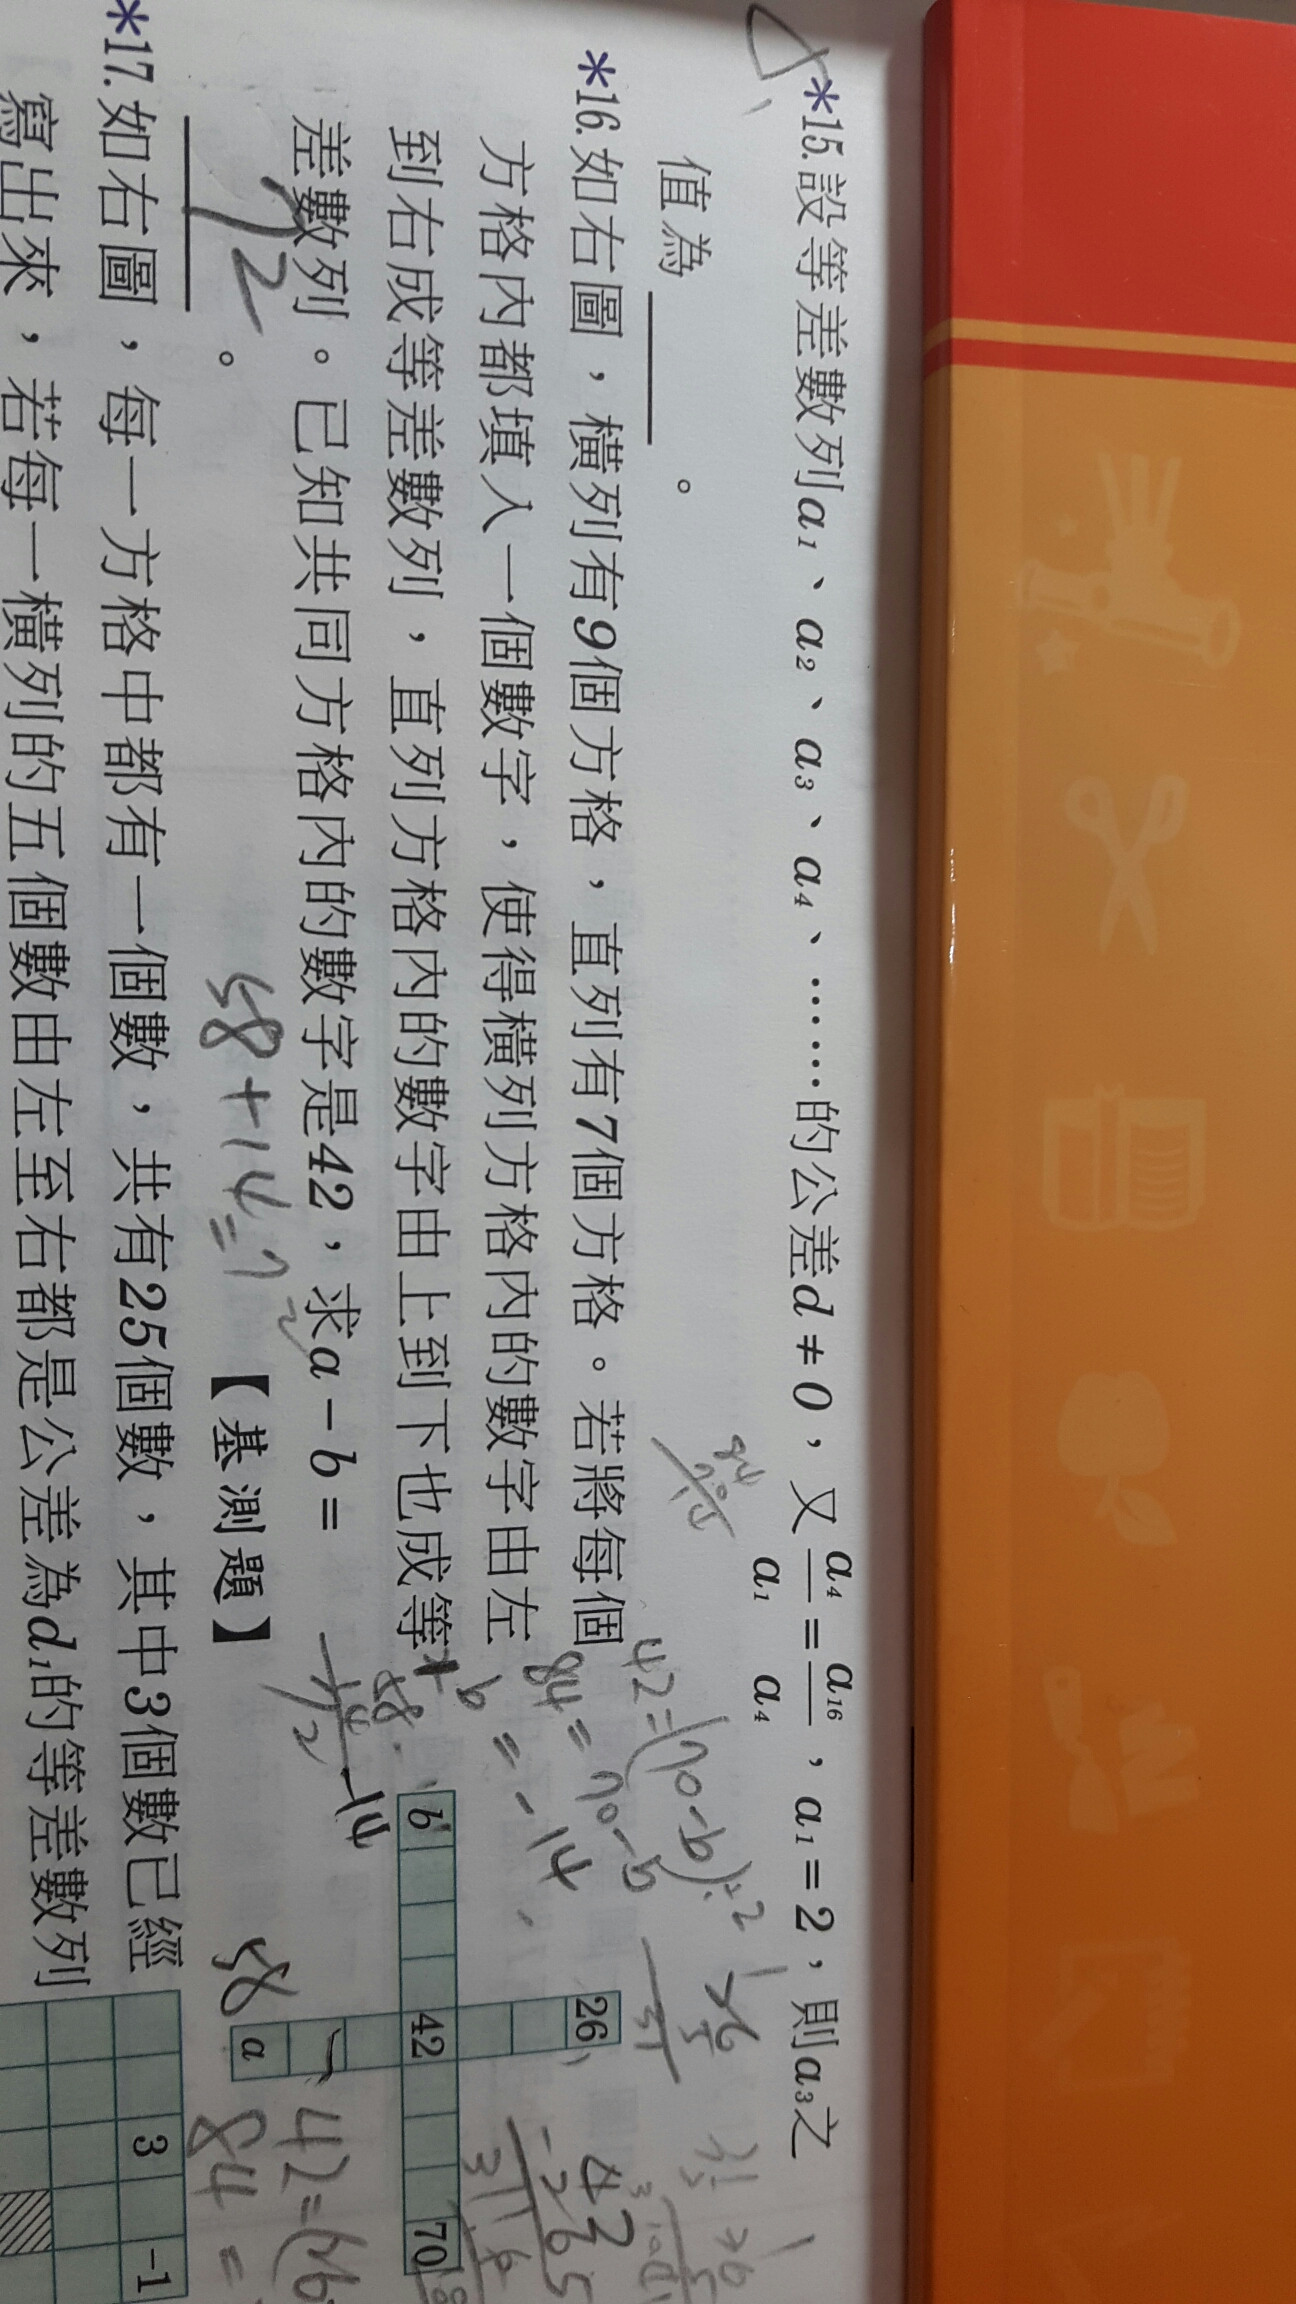 *15.設等差數列a₁、a₂、a₃、a₄、……的公差d≠0，又a₄/a₁=a₁₆/a₄，a₁=2，則a₃之
值為＿＿＿。
*16.如右圖，橫列有9個方格，直列有7個方格。若將每個
方格內都填入一個數字，使得橫列方格內的數字由左
到右成等差數列，直列方格內的數字由上到下也成等
差數列。已知共同方格內的數字是42，求a－b＝
72。
【基測題】
58+14=72
42=(70-b)÷2
84=70-b
b=-14
26
b 42 70
a
58
-14
58
84=
*17.如右圖，每一方格中都有一個數，共有25個數，其中3個數已經
寫出來，若每一橫列的五個數由左至右都是公差為d₁的等差數列
3 -1